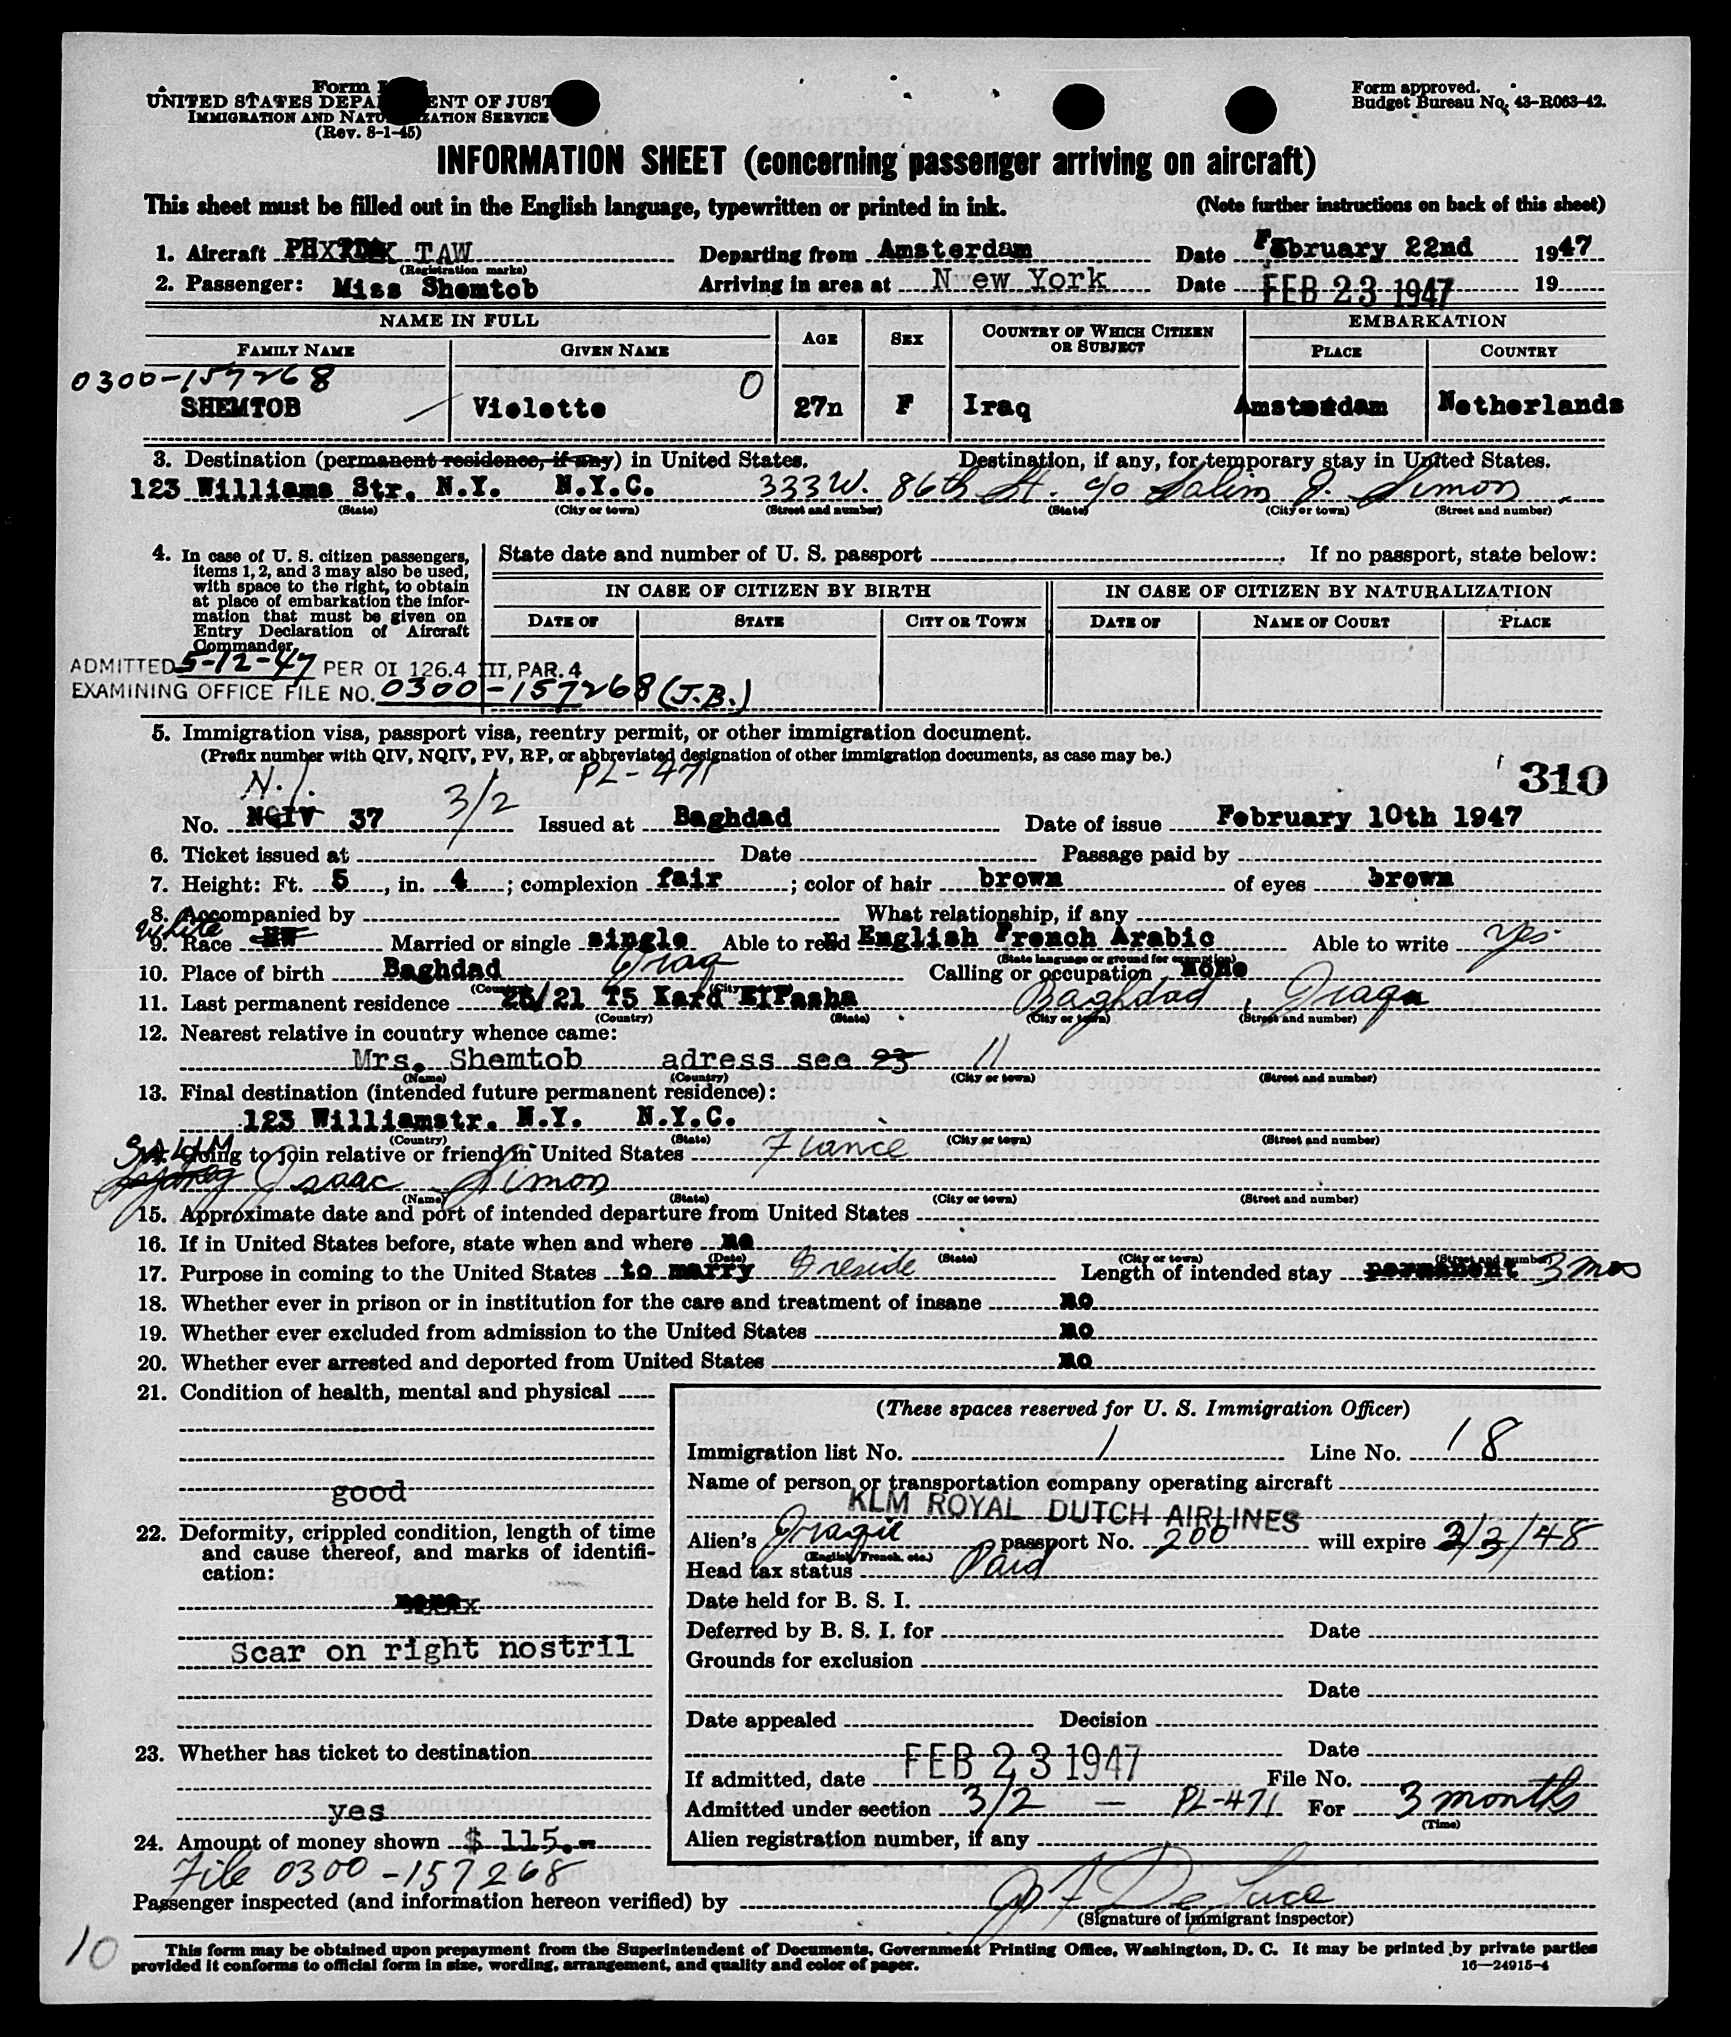 Form I
UNITED STATES DEPA ENT OF JUST
IMMIGRATION AND NATU ZATION SERVICE
(Rev. 8-1-45)
Form approved.
Budget Bureau No. 43-R063-42.
INFORMATION SHEET (concerning passenger arriving on aircraft)
This sheet must be filled out in the English language, typewritten or printed in ink. (Note further instructions on back of this sheet)
1. Aircraft PH TAW Departing from Amsterdam Date February 22nd 1947
(Registration marks)
2. Passenger: Miss Shemtob Arriving in area at New York Date FEB 23 1947 19
NAME IN FULL AGE SEX COUNTRY OF WHICH CITIZEN OR SUBJECT EMBARKATION
FAMILY NAME GIVEN NAME PLACE COUNTRY
0300-157268 0
SHEMTOB Violette 27n F Iraq Amsterdam Netherlands
3. Destination (permanent residence, if any) in United States. Destination, if any, for temporary stay in United States.
123 Williams Str. N.Y. N.Y.C. 333 W. 86th St. c/o Salim J. Simon
(State) (City or town) (Street and number) (State) (City or town) (Street and number)
4. In case of U. S. citizen passengers, items 1, 2, and 3 may also be used, with space to the right, to obtain at place of embarkation the information that must be given on Entry Declaration of Aircraft Commander.
State date and number of U. S. passport If no passport, state below:
IN CASE OF CITIZEN BY BIRTH IN CASE OF CITIZEN BY NATURALIZATION
DATE OF STATE CITY OR TOWN DATE OF NAME OF COURT PLACE
ADMITTED 5-12-47 PER OI 126.4 III, PAR. 4
EXAMINING OFFICE FILE NO. 0300-157268 (J.B.)
5. Immigration visa, passport visa, reentry permit, or other immigration document.
(Prefix number with QIV, NQIV, PV, RP, or abbreviated designation of other immigration documents, as case may be.)
N.I. 3/2 PL-471 310
No. NQIV 37 Issued at Baghdad Date of issue February 10th 1947
6. Ticket issued at Date Passage paid by
7. Height: Ft. 5, in. 4; complexion fair; color of hair brown of eyes brown
8. Accompanied by What relationship, if any
White
9. Race HW Married or single single Able to read English French Arabic Able to write yes
(State language or ground for exemption)
10. Place of birth Baghdad Iraq Calling or occupation none
(Country) (City or town)
11. Last permanent residence 25/21 T5 Kard ElPasha Baghdad, Iraq
(Country) (State) (City or town) (Street and number)
12. Nearest relative in country whence came:
Mrs. Shemtob adress see 23 11
(Name) (Country) (City or town) (Street and number)
13. Final destination (intended future permanent residence):
123 Williamstr. N.Y. N.Y.C.
(Country) (State) (City or town) (Street and number)
14. Going to join relative or friend in United States Fiance
SALIM Isaac Simon
(Name) (State) (City or town) (Street and number)
15. Approximate date and port of intended departure from United States
16. If in United States before, state when and where no
(Date) (State) (City or town) (Street and number)
17. Purpose in coming to the United States to marry & reside Length of intended stay permanent 3 mos
18. Whether ever in prison or in institution for the care and treatment of insane no
19. Whether ever excluded from admission to the United States no
20. Whether ever arrested and deported from United States no
21. Condition of health, mental and physical
good
22. Deformity, crippled condition, length of time and cause thereof, and marks of identification:
none
Scar on right nostril
23. Whether has ticket to destination
yes
24. Amount of money shown $ 115.-
(These spaces reserved for U. S. Immigration Officer)
Immigration list No. 1 Line No. 18
Name of person or transportation company operating aircraft
KLM ROYAL DUTCH AIRLINES
Alien's Iraqie passport No. 200 will expire 2/3/48
(English, French, etc.)
Head tax status Paid
Date held for B. S. I.
Deferred by B. S. I. for Date
Grounds for exclusion
Date
Date appealed Decision
Date
If admitted, date FEB 23 1947 File No.
Admitted under section 3/2 - PL-471 For 3 months
(Time)
Alien registration number, if any
File 0300-157268
Passenger inspected (and information hereon verified) by De Luca
(Signature of immigrant inspector)
10
This form may be obtained upon prepayment from the Superintendent of Documents, Government Printing Office, Washington, D. C. It may be printed by private parties
provided it conforms to official form in size, wording, arrangement, and quality and color of paper.
16—24915-4